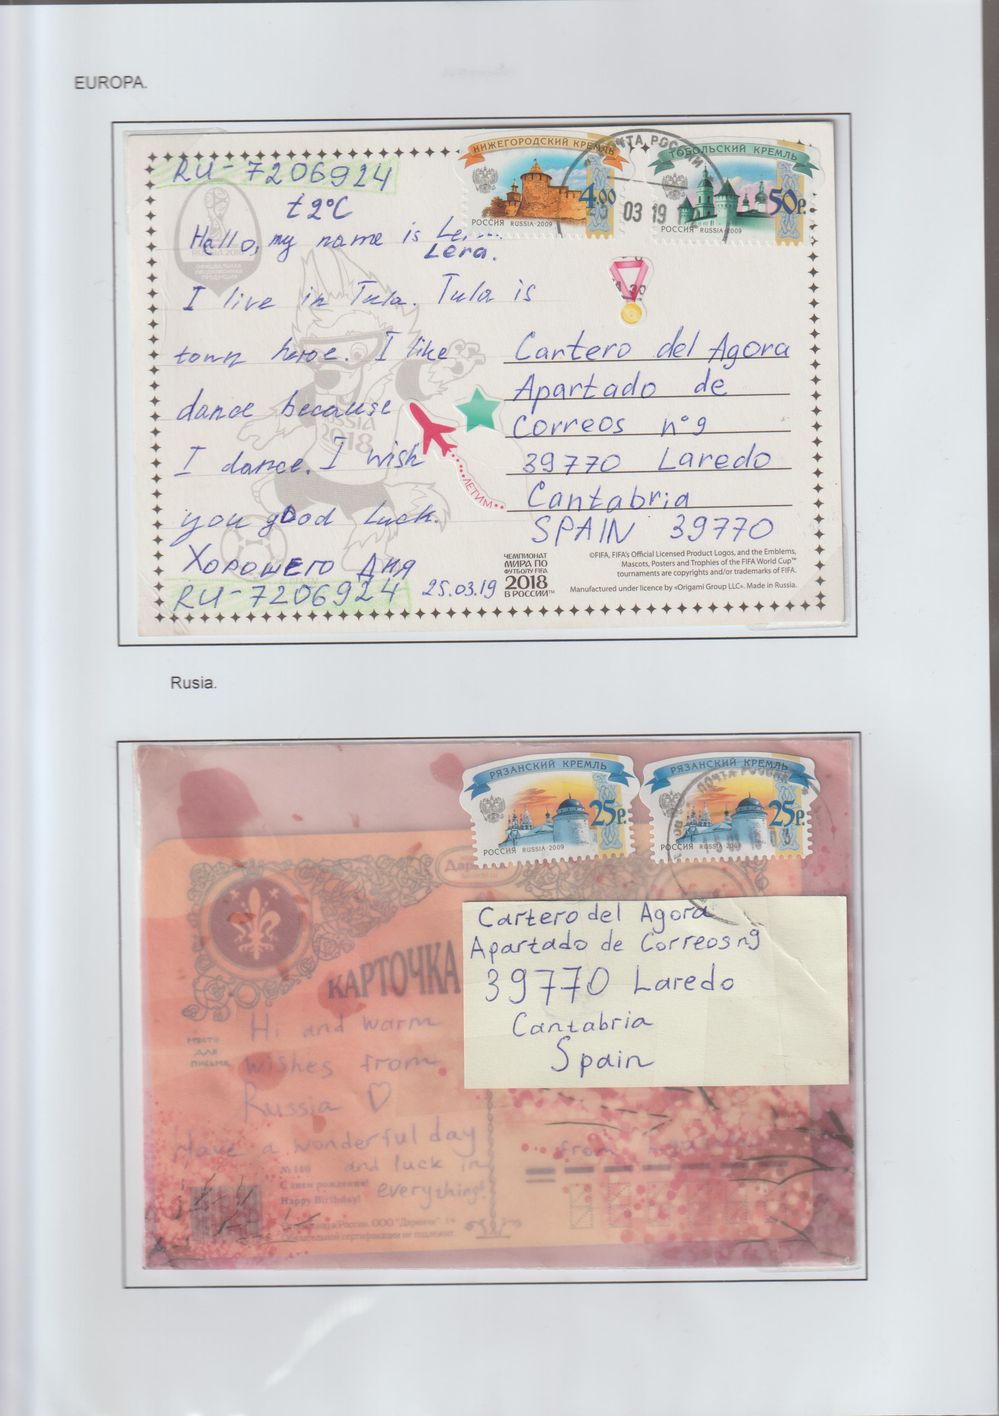 EUROPA.
RU-7206924
t 2°C
Hallo, my name is
Lera.
I live in Tula. Tula is
town heroe. I like
dance because
I dance. I wish
you good luck.
Хорошего дня
RU-7206924
25.03.19
НИЖЕГОРОДСКИЙ КРЕМЛЬ
4.00
РОССИЯ RUSSIA 2009
ПОЧТА РОССИИ
03 19
ТОБОЛЬСКИЙ КРЕМЛЬ
50 Р.
РОССИЯ RUSSIA 2009
RUSSIA
2018
ЛЕТИМ
Cartero del Agora
Apartado de
Correos nº9
39770 Laredo
Cantabria
SPAIN 39770
ЧЕМПИОНАТ
МИРА ПО
ФУТБОЛУ FIFA
2018
В РОССИИ™
©FIFA, FIFA's Official Licensed Product Logos, and the Emblems,
Mascots, Posters and Trophies of the FIFA World Cup™
tournaments are copyrights and/or trademarks of FIFA.
Manufactured under licence by «Origami Group LLC». Made in Russia.
Rusia.
РЯЗАНСКИЙ КРЕМЛЬ
25 Р.
РОССИЯ RUSSIA·2009
РЯЗАНСКИЙ КРЕМЛЬ
25 Р.
РОССИЯ RUSSIA·2009
ПОЧТА РОССИИ
Cartero del Agora
Apartado de Correos n9
39770 Laredo
Cantabria
Spain
КАРТОЧКА
МЕСТО
ДЛЯ
ПИСЬМА
Hi and warm
wishes from
Russia ♡
Have a wonderful day
and luck in
everything!
from
№ 140
С днем рождения!
Happy Birthday!